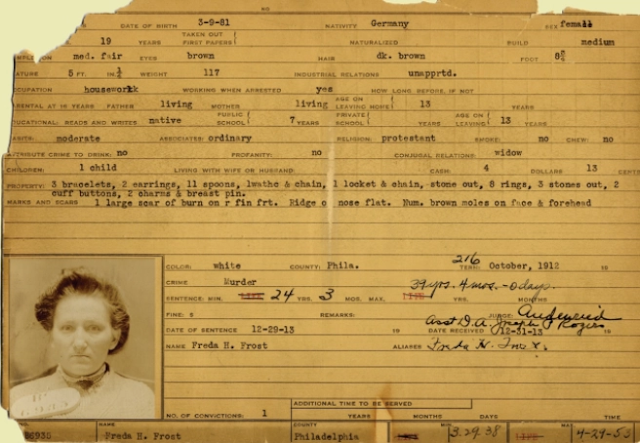 NO
DATE OF BIRTH 3-9-81 NATIVITY Germany SEX female
19 YEARS TAKEN OUT FIRST PAPERS NATURALIZED BUILD medium
med. fair EYES brown HAIR dk. brown FOOT
5 FT. IN. ½ WEIGHT 117 INDUSTRIAL RELATIONS unapprtd.
OCCUPATION housework WORKING WHEN ARRESTED yes HOW LONG BEFORE, IF NOT
PARENTAL AT 16 YEARS FATHER living MOTHER living AGE ON LEAVING HOME 13 YEARS
EDUCATIONAL: READS AND WRITES native PUBLIC SCHOOL 7 YEARS PRIVATE SCHOOL YEARS AGE ON LEAVING 13 YEARS
HABITS: moderate ASSOCIATES: ordinary RELIGION: protestant SMOKE: no CHEW: no
ATTRIBUTE CRIME TO DRINK: no PROFANITY: no CONJUGAL RELATIONS: widow
CHILDREN: 1 child LIVING WITH WIFE OR HUSBAND: CASH: 4 DOLLARS 13 CENTS
PROPERTY: 3 bracelets, 2 earrings, 11 spoons, 1wathc & chain, 1 locket & chain, stone out, 8 rings, 3 stones out, 2
cuff buttons, 2 charms & breast pin.
MARKS AND SCARS 1 large scar of burn on r fin frt. Ridge o nose flat. Num. brown moles on face & forehead
COLOR: white COUNTY: Phila. 216 TERM: October, 1912 19
CRIME Murder 39 yrs. 4 mos. - 0 days.
SENTENCE: MIN. 24 YRS. 3 MOS. MAX. YRS. MONTHS
FINE: $ REMARKS: JUDGE: Audenried
Asst D.A. Joseph Rogers
DATE OF SENTENCE 12-29-13 19 DATE RECEIVED 12-31-13 19
NAME Freda H. Frost ALIASES Freda H. Frost.
ADDITIONAL TIME TO BE SERVED
NO. OF CONVICTIONS: 1 YEARS MONTHS DAYS
NAME COUNTY TIME
6935 Freda H. Frost Philadelphia 3.24.38 4-24-53